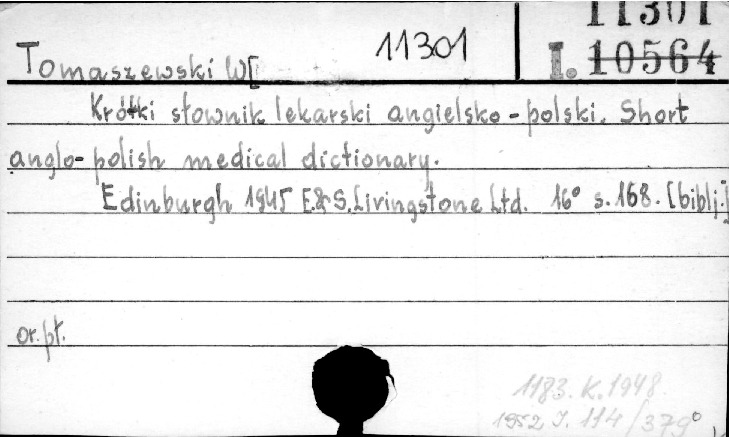 11301
Tomaszewski W[ 11301 I. 10564
Krótki słownik lekarski angielsko-polski. Short
anglo-polish medical dictionary.
Edinburgh 1945 E.&S. Livingstone Ltd. 16° s. 168. [biblj.]
or. pł.
1183. K. 1948.
1952 J. 114/379°